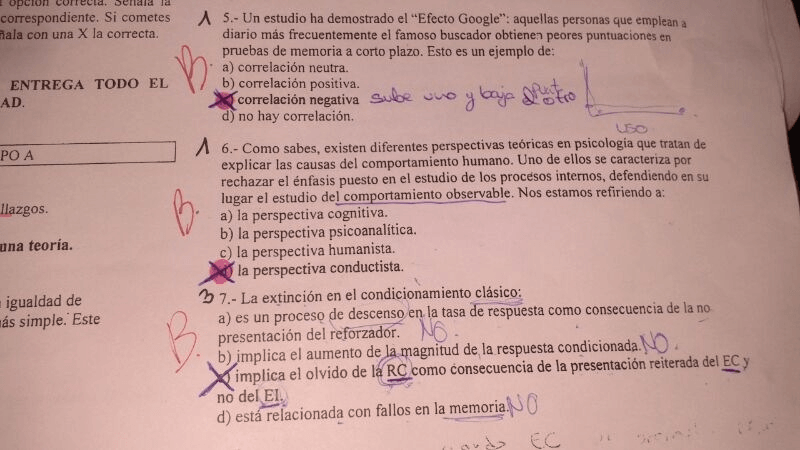 opción correcta. Señala la
correspondiente. Si cometes
ñala con una X la correcta.
ENTREGA TODO EL
AD.
PO A
llazgos.
una teoría.
igualdad de
ás simple. Este
1 5.- Un estudio ha demostrado el “Efecto Google”: aquellas personas que emplean a
diario más frecuentemente el famoso buscador obtienen peores puntuaciones en
pruebas de memoria a corto plazo. Esto es un ejemplo de:
B.
a) correlación neutra.
b) correlación positiva.
correlación negativa sube uno y baja otro
d) no hay correlación.
Punt
USO
1 6.- Como sabes, existen diferentes perspectivas teóricas en psicología que tratan de
explicar las causas del comportamiento humano. Uno de ellos se caracteriza por
rechazar el énfasis puesto en el estudio de los procesos internos, defendiendo en su
lugar el estudio del comportamiento observable. Nos estamos refiriendo a:
B.
a) la perspectiva cognitiva.
b) la perspectiva psicoanalítica.
c) la perspectiva humanista.
la perspectiva conductista.
3 7.- La extinción en el condicionamiento clásico:
a) es un proceso de descenso en la tasa de respuesta como consecuencia de la no
presentación del reforzador. NO.
B.
b) implica el aumento de la magnitud de la respuesta condicionada. NO.
implica el olvido de la RC como consecuencia de la presentación reiterada del EC y
no del EI.
d) está relacionada con fallos en la memoria. NO
EC